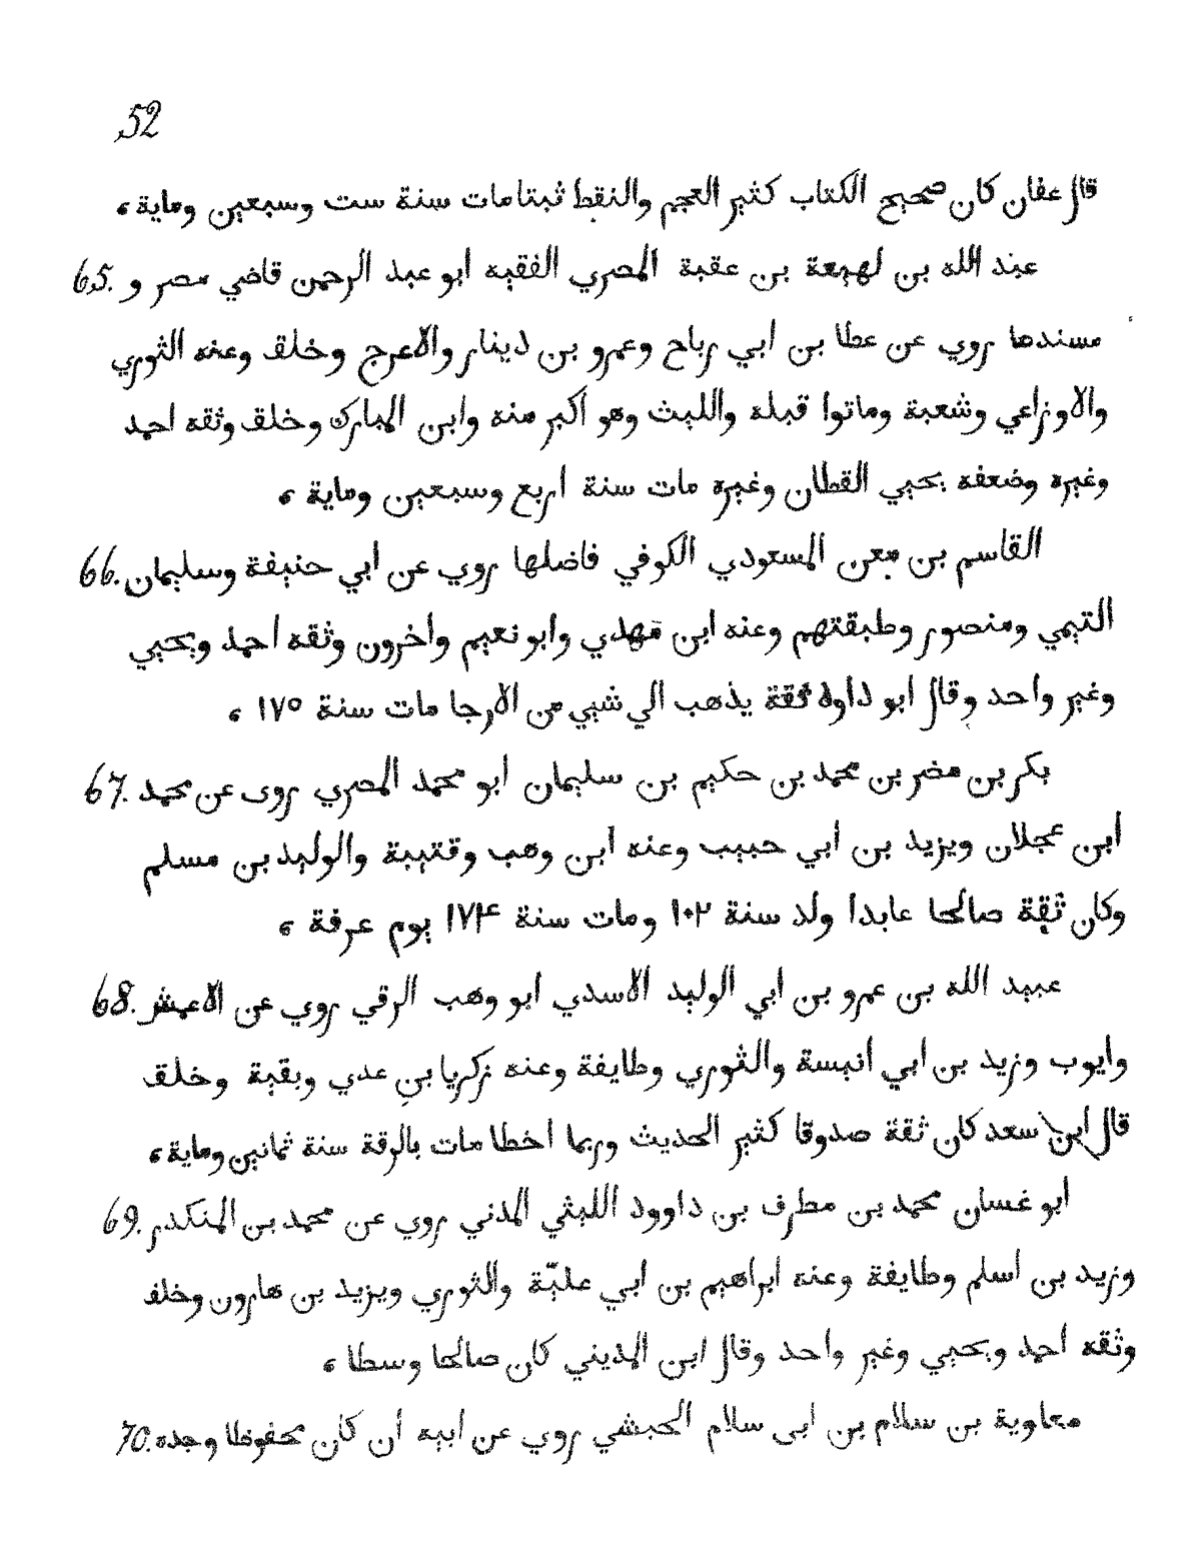 52
قال عفان كان صحيح الكتاب كثير العجم والنقط ثبتا مات سنة ست وسبعين وماية ،
65. عبد الله بن لهيعة بن عقبة المصري الفقيه ابو عبد الرحمن قاضي مصر و
مسندها روي عن عطا بن ابي رباح وعمرو بن دينار والاعرج وخلق وعنه الثوري
والاوزاعي وشعبة وماتوا قبله والليث وهو اكبر منه وابن المبارك وخلق وثقه احمد
وغيره وضعفه يحيي القطان وغيره مات سنة اربع وسبعين وماية ،
66. القاسم بن معن المسعودي الكوفي فاضلها روي عن ابي حنيفة وسليمان
التيمي ومنصور وطبقتهم وعنه ابن مهدي وابو نعيم واخرون وثقه احمد ويحيي
وغير واحد وقال ابو داود ثقة يذهب الي شيي من الارجا مات سنة ١٧٥ ،
67. بكر بن مضر بن محمد بن حكيم بن سليمان ابو محمد المصري روى عن محمد
ابن عجلان ويزيد بن ابي حبيب وعنه ابن وهب وقتيبة والوليد بن مسلم
وكان ثقة صالحا عابدا ولد سنة ١٠٢ ومات سنة ١٧٤ يوم عرفة ،
68. عبيد الله بن عمرو بن ابي الوليد الاسدي ابو وهب الرقي روي عن الاعمش
وايوب وزيد بن ابي انيسة والثوري وطايفة وعنه زكريا بن عدي وبقية وخلق
قال ابن سعد كان ثقة صدوقا كثير الحديث وربما اخطا مات بالرقة سنة ثمانين وماية ،
69. ابو غسان محمد بن مطرف بن داوود الليثي المدني روي عن محمد بن المنكدر
وزيد بن اسلم وطايفة وعنه ابراهيم بن ابي عليّة والثوري ويزيد بن هارون وخلف
وثقه احمد ويحيي وغير واحد وقال ابن المديني كان صالحا وسطا ،
70. معاوية بن سلام بن ابى سلام الحبشي روي عن ابيه أن كان محفوظا وجده